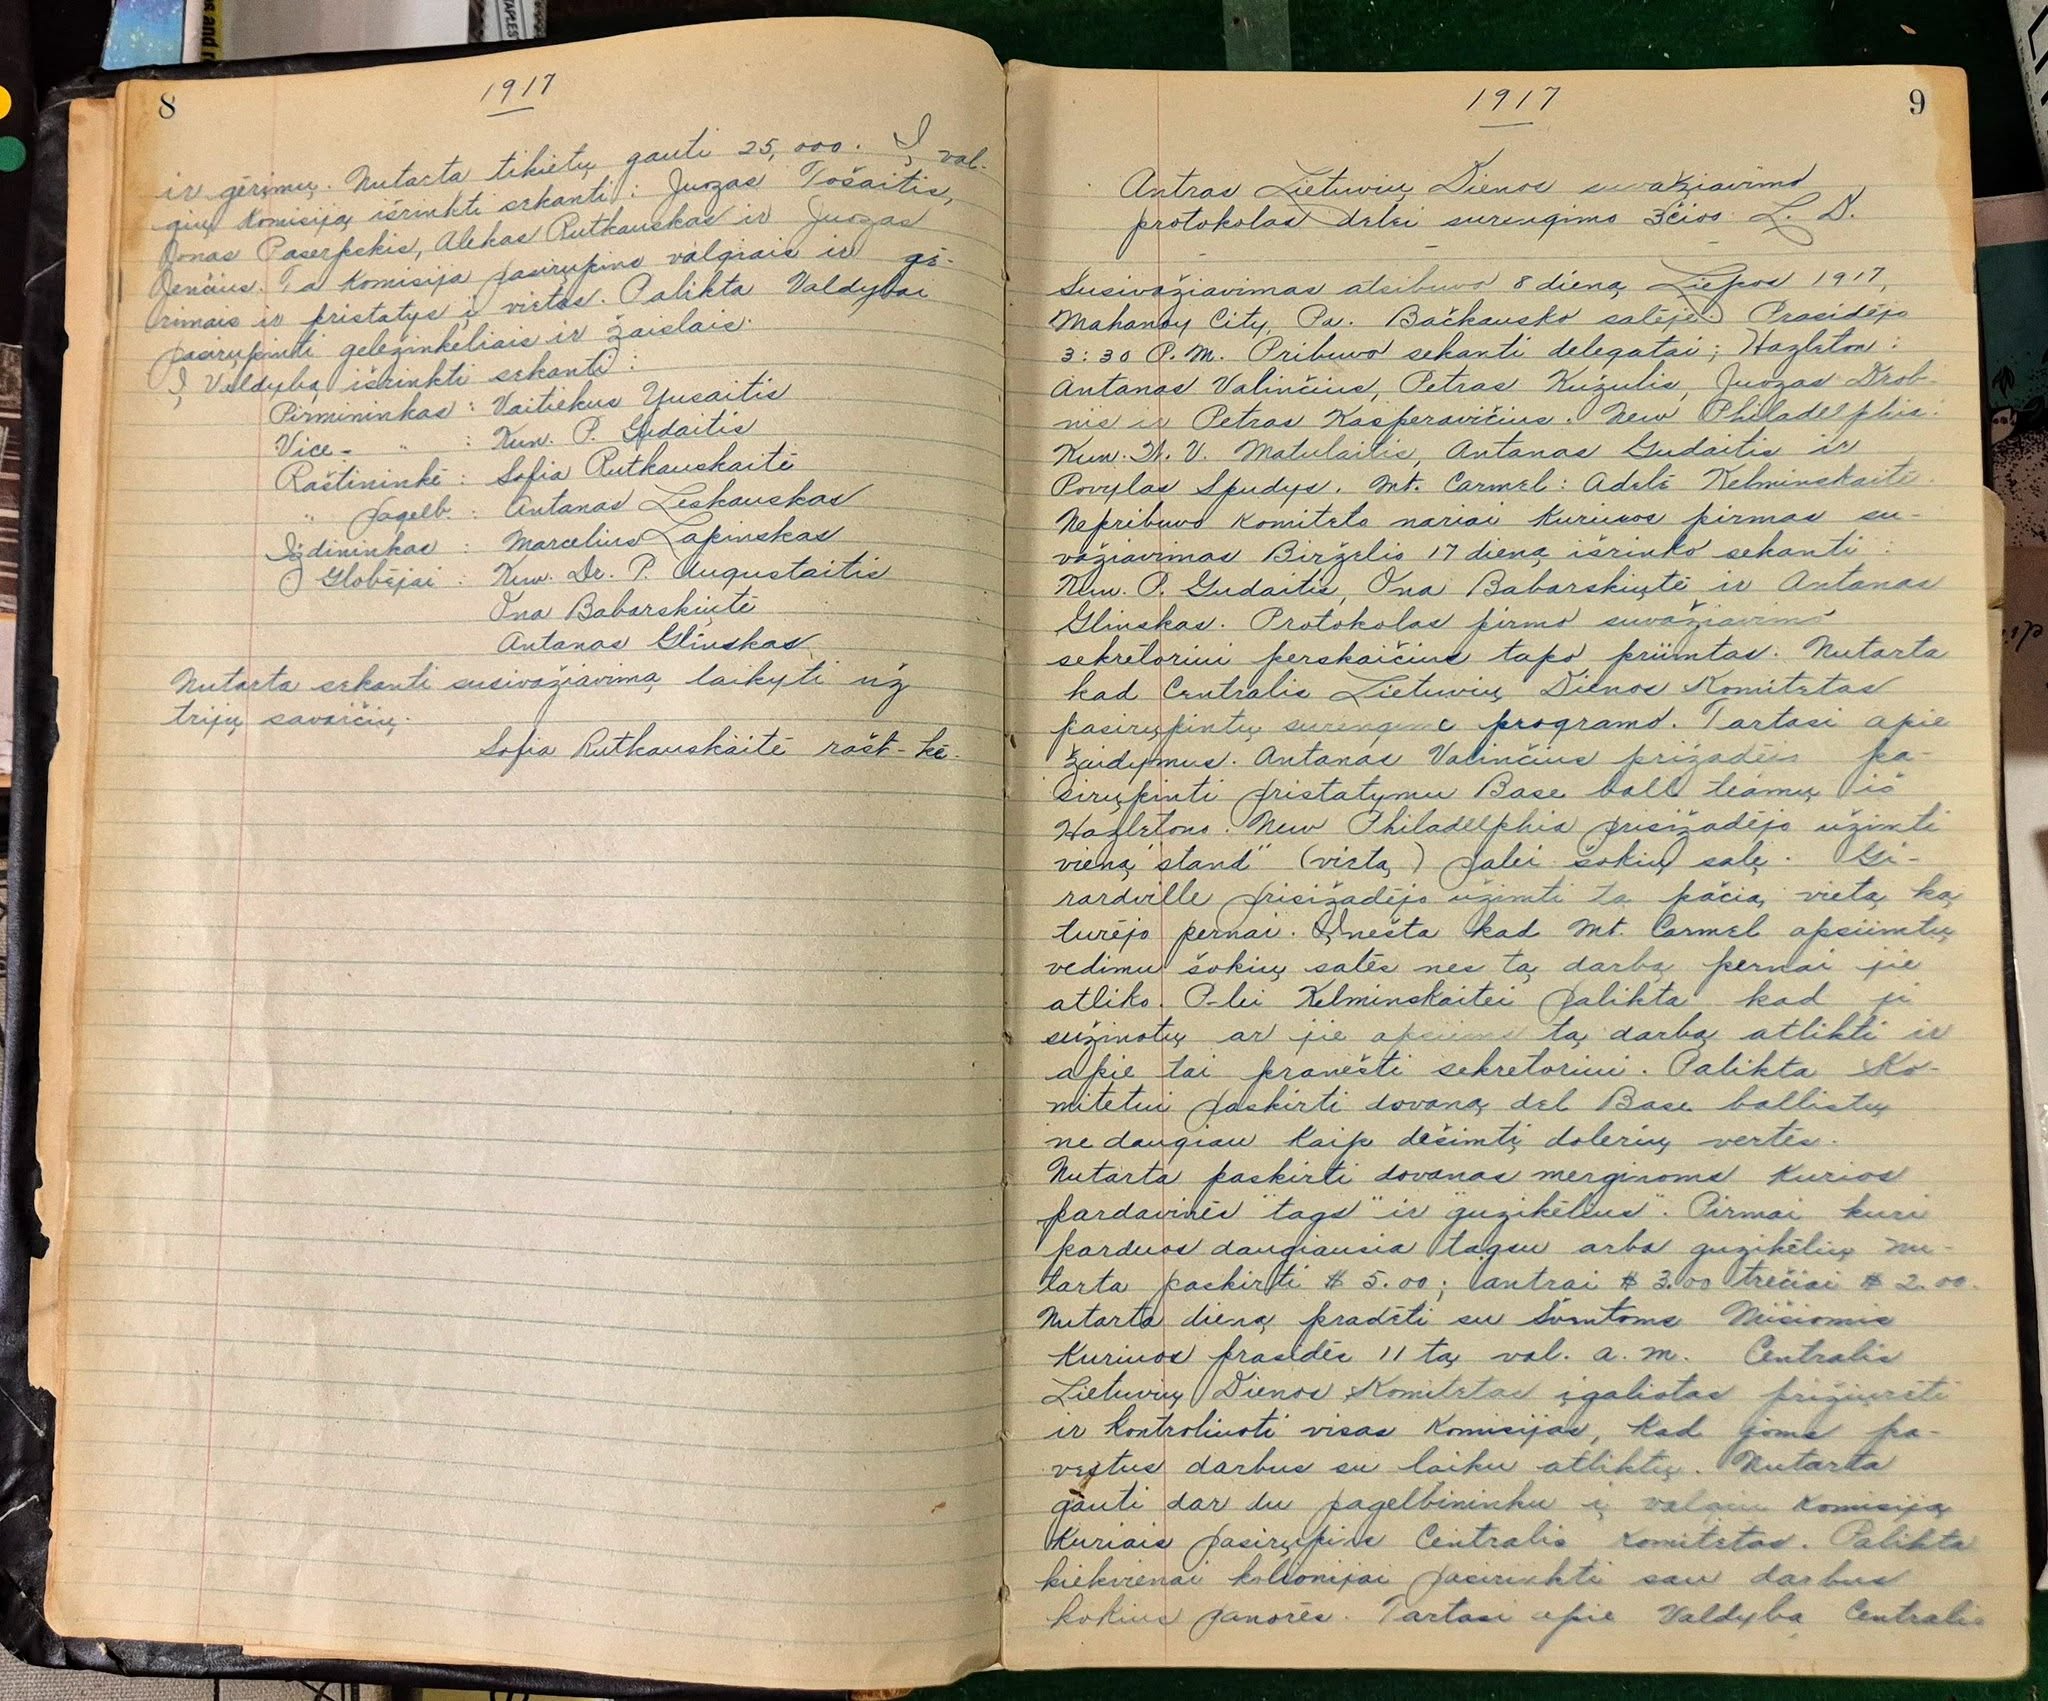 8
1917
ir gėrimų. Nutarta tikietų gauti 25,000. Į val-
gių Komisiją išrinkti sekanti: Juozas Tošaitis,
Jonas Paserpskis, Alekas Rutkauskas ir Juozas
Jenčius. Ta Komisija pasirupins valgiais ir gė-
rimais ir pristatys į vietas. Palikta Valdybai
pasirupinti geležinkeliais ir žaislais.
Į Valdybą išrinkti sekanti:
Pirmininkas : Vaitiekus Yusaitis
Vice- " : Kun. P. Gudaitis
Raštininkė : Sofia Rutkauskaitė
" pagelb. : Antanas Leskauskas
Iždininkas : Marcelius Lapinskas
Globėjai : Kun. Dr. P. Augustaitis
Ona Babarskiųtė
Antanas Glinskas
Nutarta sekanti susivažiavimą laikyti už
trijų savaičių.
Sofia Rutkauskaitė rašt-kė.
1917
9
Antras Lietuvių Dienos suvažiavimo
protokolas delei surengimo 3čios L. D.
Susivažiavimas atsibuvo 8 dieną Liepos 1917,
Mahanoy City, Pa. Bačkausko salėje. Prasidėjo
3:30 P.M. Pribuvo sekanti delegatai; Hazleton:
Antanas Valinčius, Petras Kužulis, Juozas Drob-
nis ir Petras Kasperavičius. New Philadelphia:
Kun. V. Matulaitis, Antanas Gudaitis ir
Povylas Spudys. Mt. Carmel: Adelė Kelminskaitė.
Nepribuvo Komiteto nariai Kuriuos pirmas su-
važiavimas Birželio 17 dieną išrinko sekanti:
Kun. P. Gudaitis, Ona Babarskiųtė ir Antanas
Glinskas. Protokolas pirmo suvažiavimo
sekretoriui perskaičius tapo priimtas. Nutarta
kad Centralis Lietuvių Dienos Komitetas
pasirųpintų programo. Tartasi apie
žaidymus. Antanas Valinčius prižadėjo pa-
sirųpinti pristatymu Base ball teamų iš
Hazletono. New Philadelphia prisižadėjo užimti
vieną "stand" (vietą) palei šokių salę. Gi-
rardville prisižadėjo užimti ta pačią vietą ką
turėjo pernai. Įnešta kad Mt. Carmel apsiimtų
vedimu šokių salės nes tą darbą pernai jie
atliko. P-lei Kelminskaitei palikta kad ji
sužinotų ar jie apsiims tą darbą atlikti ir
apie tai pranešti sekretoriui. Palikta Ko-
mitetui paskirti dovaną del Base ballistų
ne daugiau kaip dešimtį dolerių vertės.
Nutarta paskirti dovanas merginoms Kurios
pardavinės "tags" ir "guzikėlius". Pirmai kuri
parduos daugiausia tagsu arba guzikėlių nu-
tarta paskirti $ 5.00; antrai $ 3.00 trečiai $ 2.00.
Nutarta dieną pradėti su Šventoms Mišiomis
Kurios prasidės 11 tą val. a.m. Centralis
Lietuvių Dienos Komitetas įgaliotas prižiųrėti
ir kontroliuoti visas Komisijas, Kad joms pa-
vestus darbus su laiku atliktų. Nutarta
gauti dar du pagelbininku į valgių Komisiją
Kuriais pasirųpins Centralis Komitetas. Palikta
kiekvienai kolionijai pasirinkti sau darbus
kokius panorės. Tartasi apie Valdybą Centralio